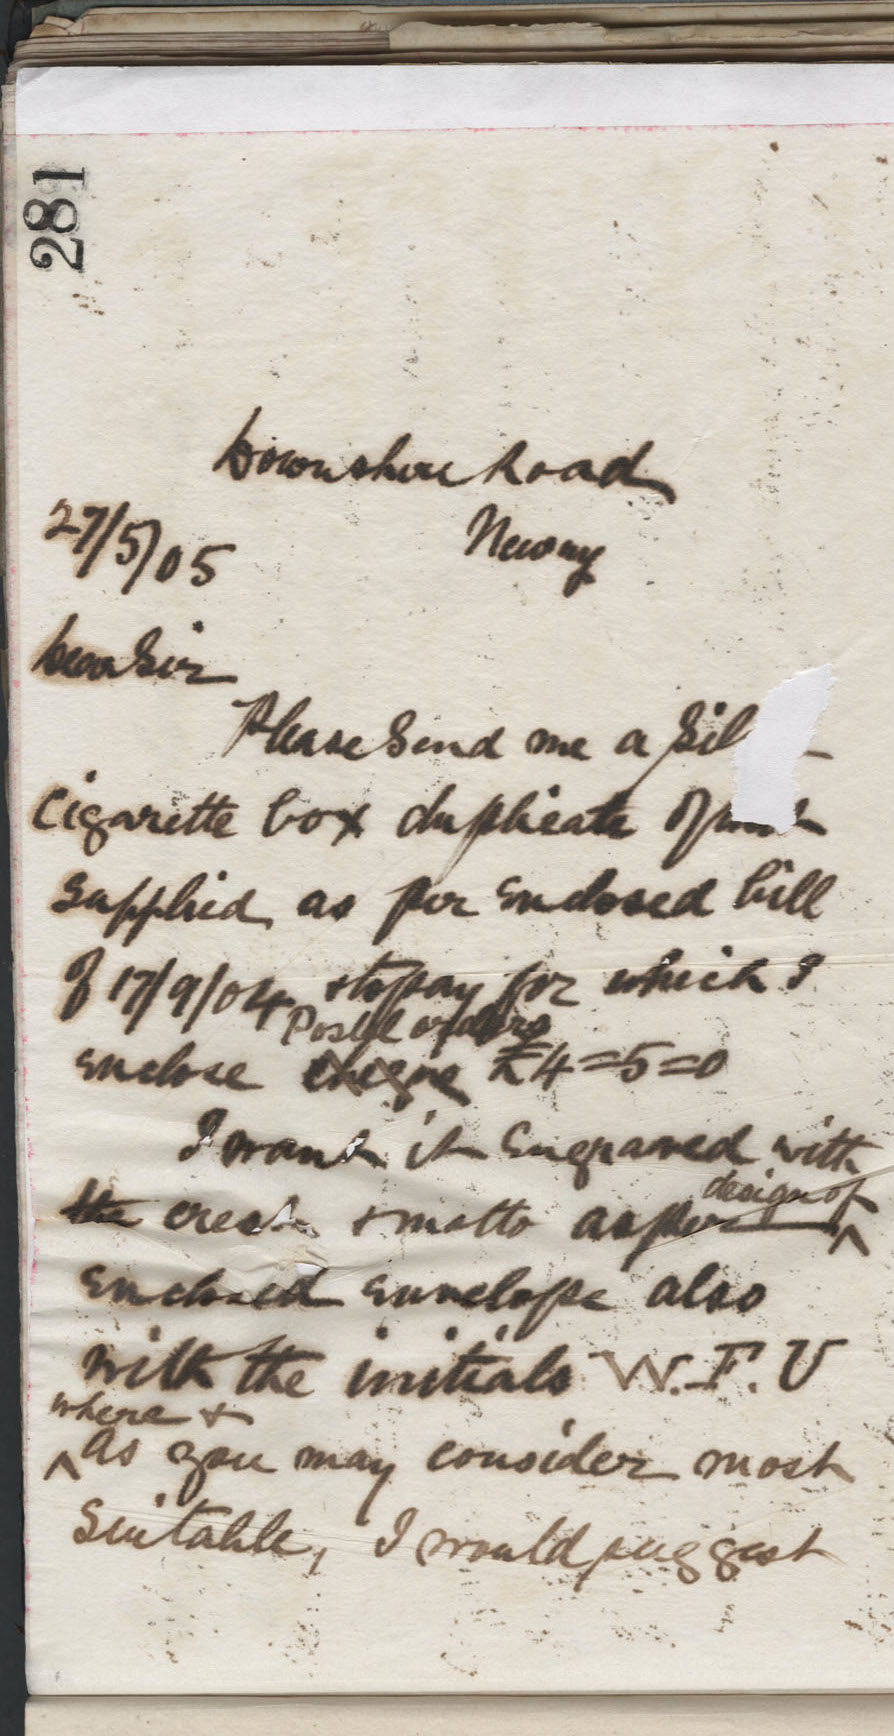 281
Downshire Road
Newry
27/5/05
Dear Sir
Please Send me a Sil
Cigarette box duplicate of
Supplied as per Enclosed bill
of 17/9/04 to pay for which I
Postal orders
Enclose cheque £4=5=0
I want it Engraved with
design of
the crest & motto as per
Enclosed Envelope also
with the initials W.F.U
where &
^ as you may consider most
Suitable, I would suggest